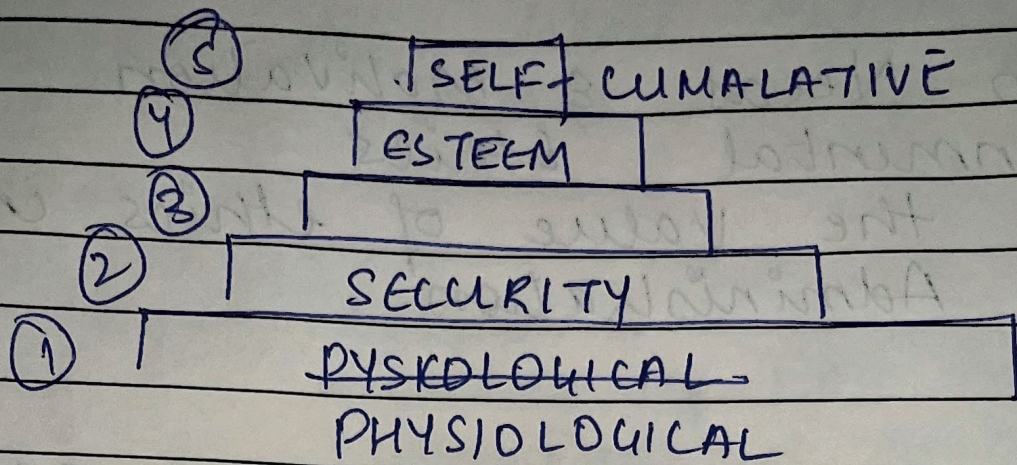 5 SELF CUMALATIVE
4 ESTEEM
3
2 SECURITY
1 PYSKOLOGICAL
PHYSIOLOGICAL